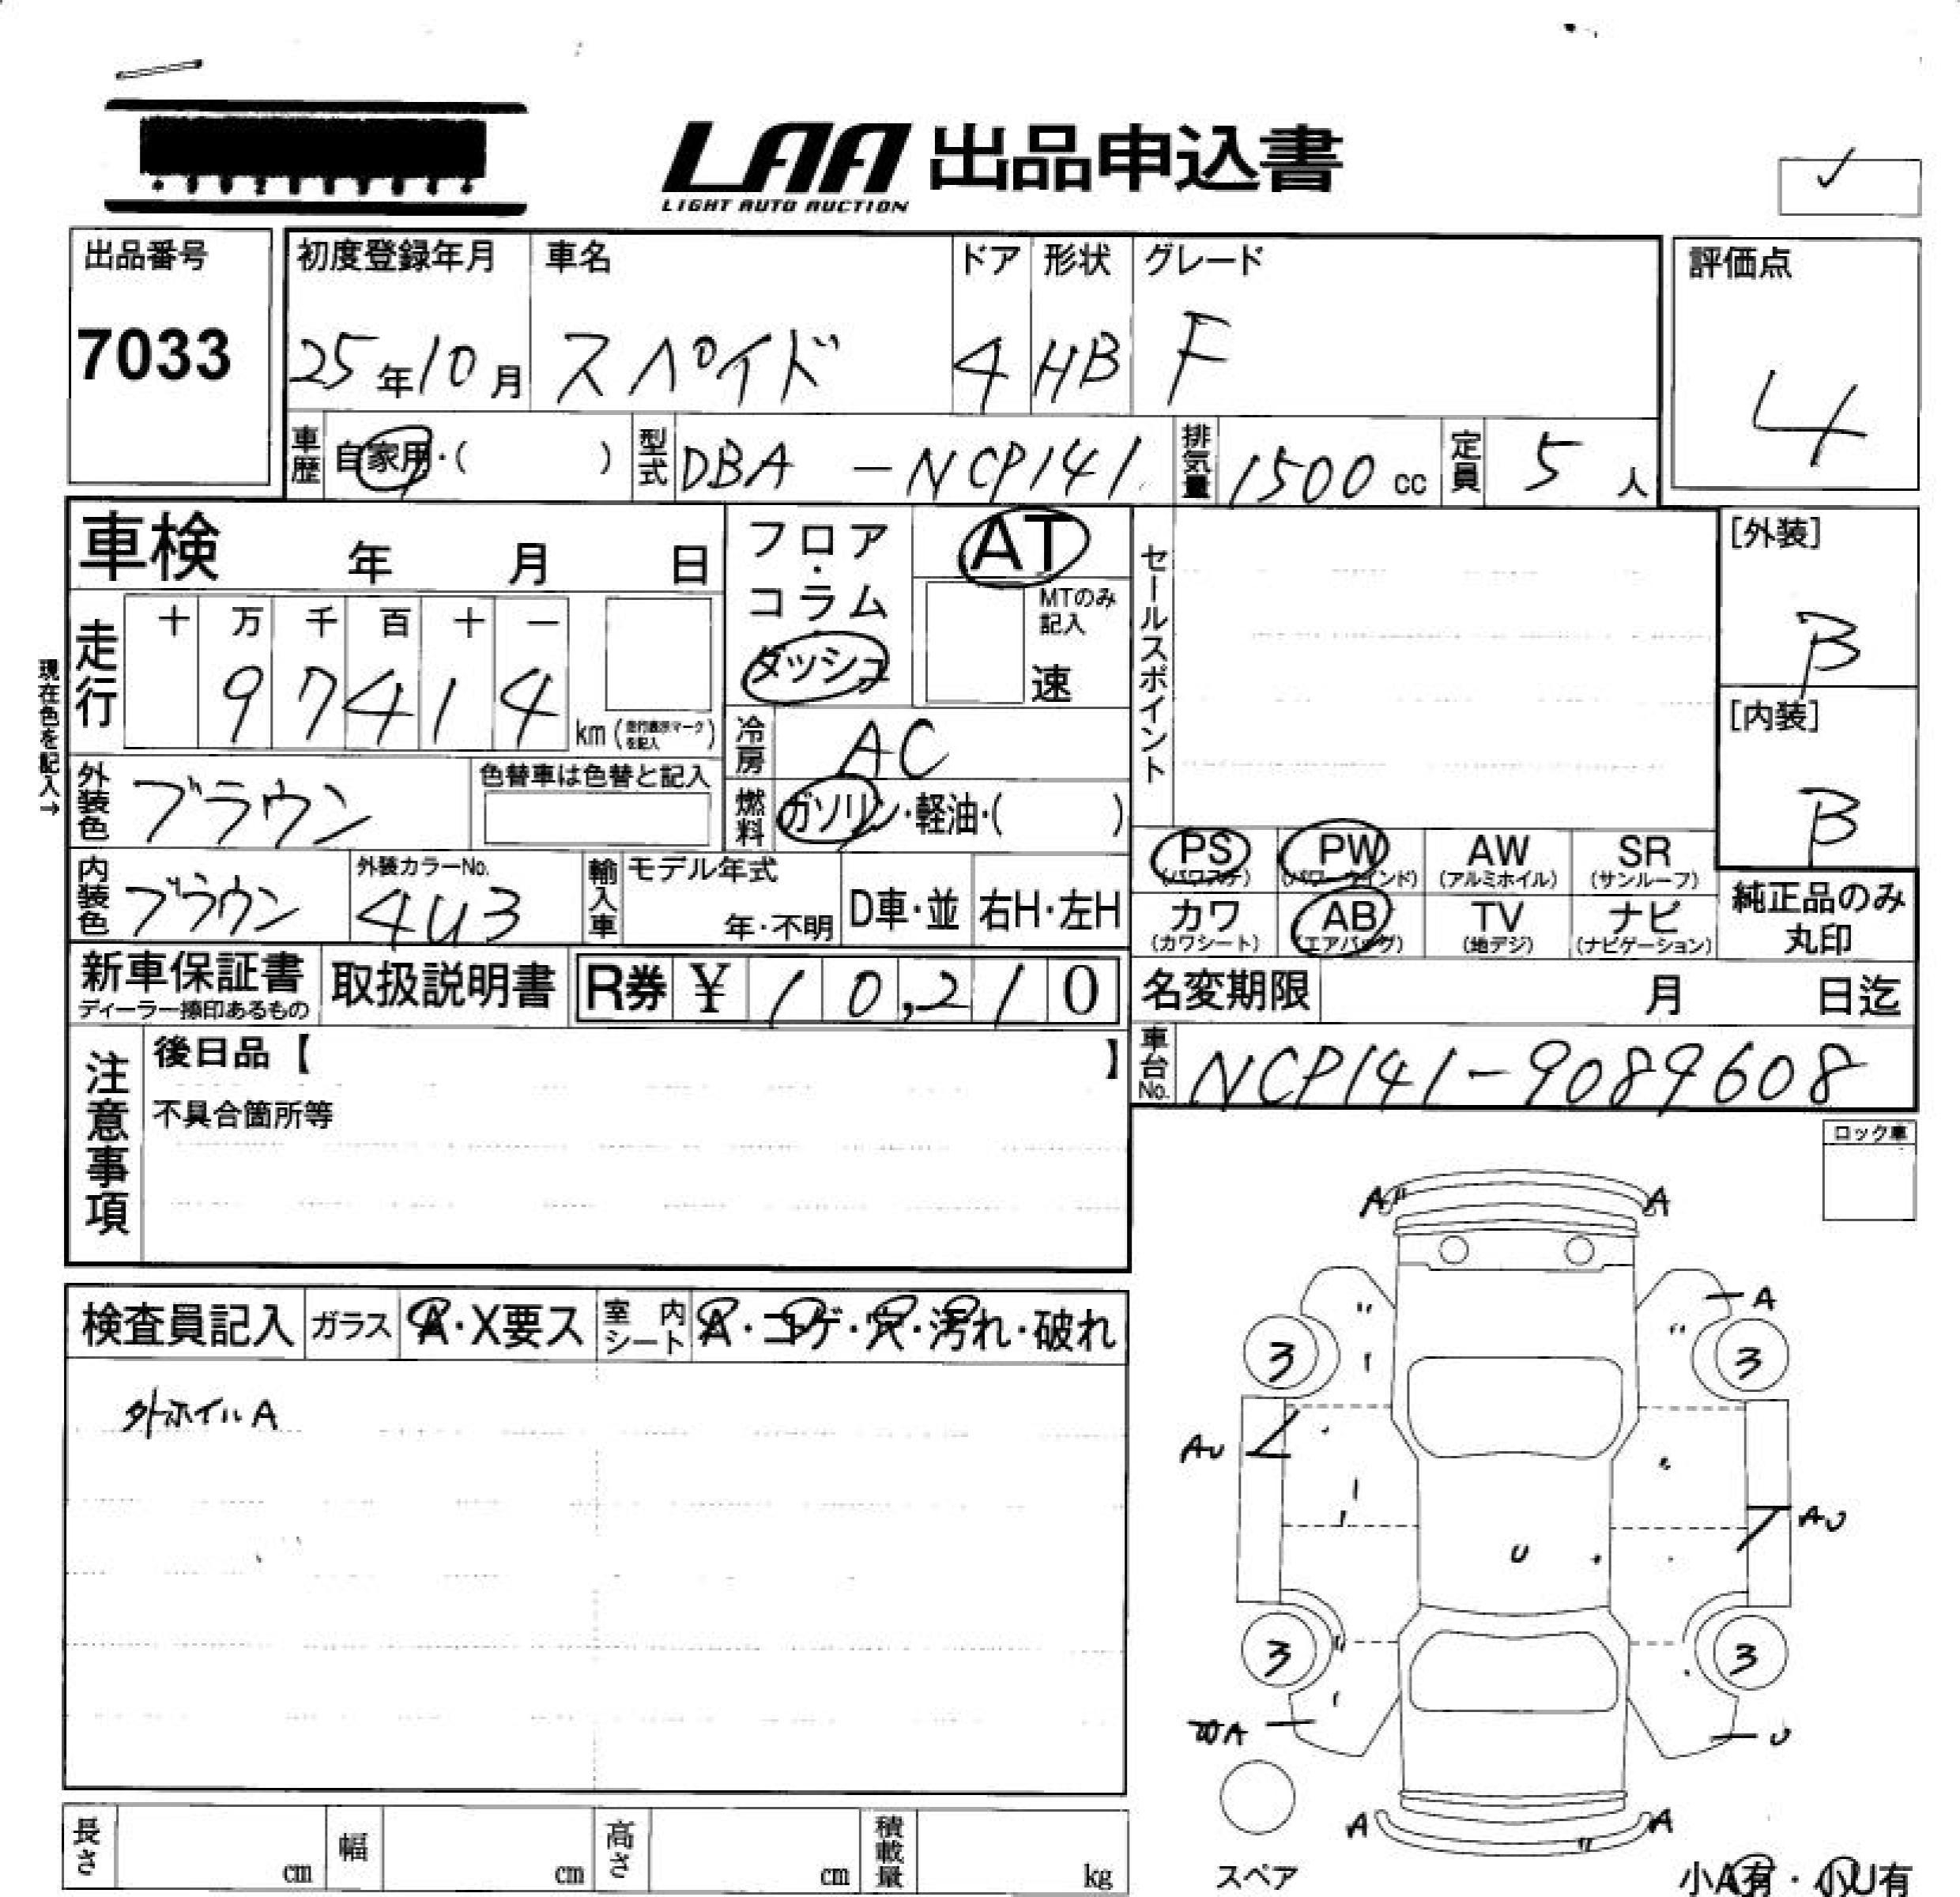 LAA 出品申込書
LIGHT AUTO AUCTION
出品番号
7033
初度登録年月
25年10月
車名
スペイド
ドア
4
形状
HB
グレード
F
評価点
4
車歴
自家用・( )
型式
DBA - NCP141
排気量
1500 cc
定員
5 人
車検 年 月 日
フロア・コラム
ダッシュ
AT
MTのみ記入
速
セールスポイント
[外装]
B
[内装]
B
現在色を記入→
走行
十 万 千 百 十 一
9 7 4 1 4
km (走行表示マークを記入)
冷房
AC
燃料
ガソリン・軽油・( )
外装色
ブラウン
色替車は色替と記入
内装色
ブラウン
外装カラーNo.
4U3
輸入車
モデル年式
年・不明
D車・並
右H・左H
PS
(パワステ)
PW
(パワーウインド)
AW
(アルミホイル)
SR
(サンルーフ)
カワ
(カワシート)
AB
(エアバッグ)
TV
(地デジ)
ナビ
(ナビゲーション)
純正品のみ
丸印
新車保証書
ディーラー捺印あるもの
取扱説明書
R券 ¥ 10,210
名変期限 月 日迄
車台No.
NCP141-9089608
注意事項
後日品【 】
不具合箇所等
ロック車
検査員記入
ガラス
A・X要ス
室内シート
A・コゲ・穴・汚れ・破れ
外ホイルA
A A
A
3 3
AU
AU
U
3 3
A
U
A A
スペア
小A有・小U有
長さ cm
幅 cm
高さ cm
積載量 kg